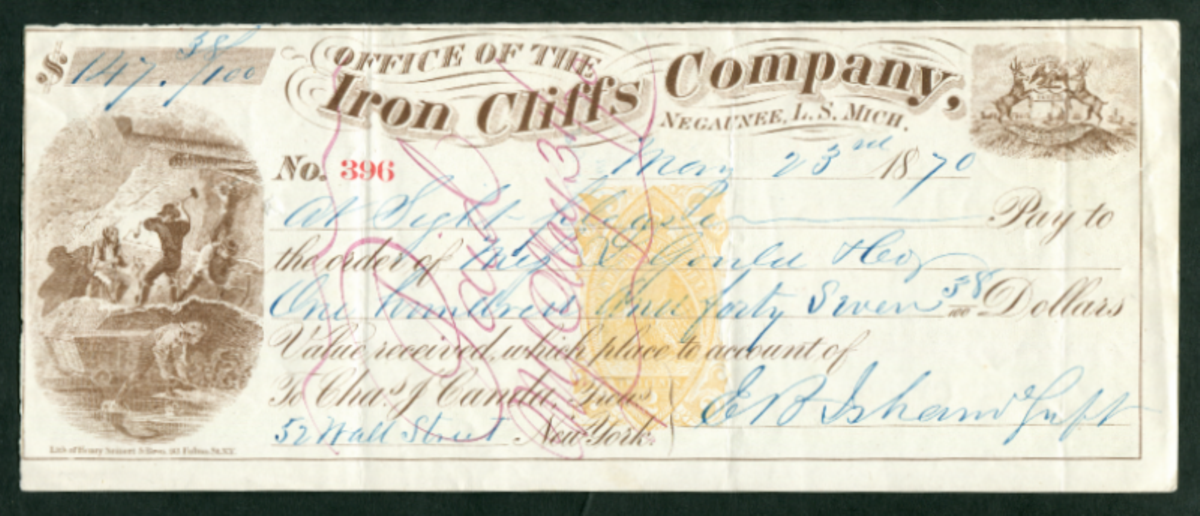 $ 147. 38/100
OFFICE OF THE
Iron Cliffs Company,
NEGAUNEE, L. S. MICH.
No. 396
May 23rd 1870
At Sight please Pay to
the order of Gould &
One Hundred and forty Seven 38/100 Dollars
Value received, which place to account of
To Chas. J. Canda, Treas
52 Wall Street New York.
E B Isham
Lith of Henry 163 Fulton St. N.Y.
Paid